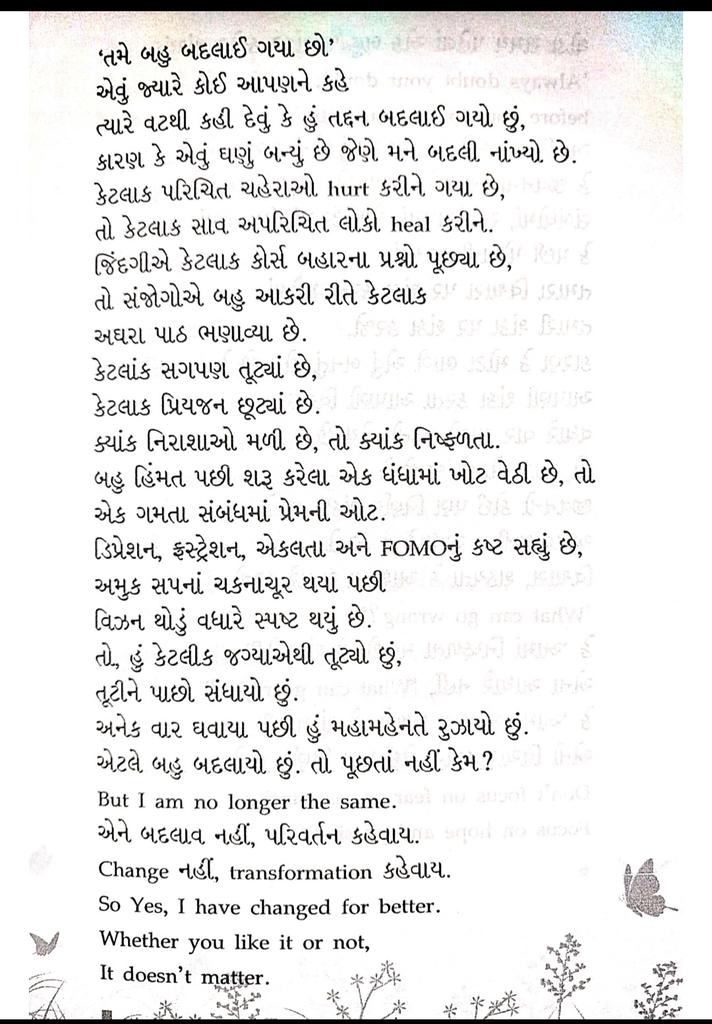 ‘તમે બહુ બદલાઈ ગયા છો’
એવું જ્યારે કોઈ આપણને કહે
ત્યારે વટથી કહી દેવું કે હું તદ્દન બદલાઈ ગયો છું,
કારણ કે એવું ઘણું બન્યું છે જેણે મને બદલી નાંખ્યો છે.
કેટલાક પરિચિત ચહેરાઓ hurt કરીને ગયા છે,
તો કેટલાક સાવ અપરિચિત લોકો heal કરીને.
જિંદગીએ કેટલાક કોર્સ બહારના પ્રશ્નો પૂછ્યા છે,
તો સંજોગોએ બહુ આકરી રીતે કેટલાક
અઘરા પાઠ ભણાવ્યા છે.
કેટલાંક સગપણ તૂટ્યાં છે,
કેટલાક પ્રિયજન છૂટ્યાં છે.
ક્યાંક નિરાશાઓ મળી છે, તો ક્યાંક નિષ્ફળતા.
બહુ હિંમત પછી શરૂ કરેલા એક ધંધામાં ખોટ વેઠી છે, તો
એક ગમતા સંબંધમાં પ્રેમની ઓટ.
ડિપ્રેશન, ફ્રસ્ટ્રેશન, એકલતા અને FOMOનું કષ્ટ સહ્યું છે,
અમુક સપનાં ચકનાચૂર થયા પછી
વિઝન થોડું વધારે સ્પષ્ટ થયું છે.
તો, હું કેટલીક જગ્યાએથી તૂટ્યો છું,
તૂટીને પાછો સંધાયો છું.
અનેક વાર ઘવાયા પછી હું મહામહેનતે રુઝાયો છું.
એટલે બહુ બદલાયો છું. તો પૂછતાં નહીં કેમ?
But I am no longer the same.
એને બદલાવ નહીં, પરિવર્તન કહેવાય.
Change નહીં, transformation કહેવાય.
So Yes, I have changed for better.
Whether you like it or not,
It doesn’t matter.